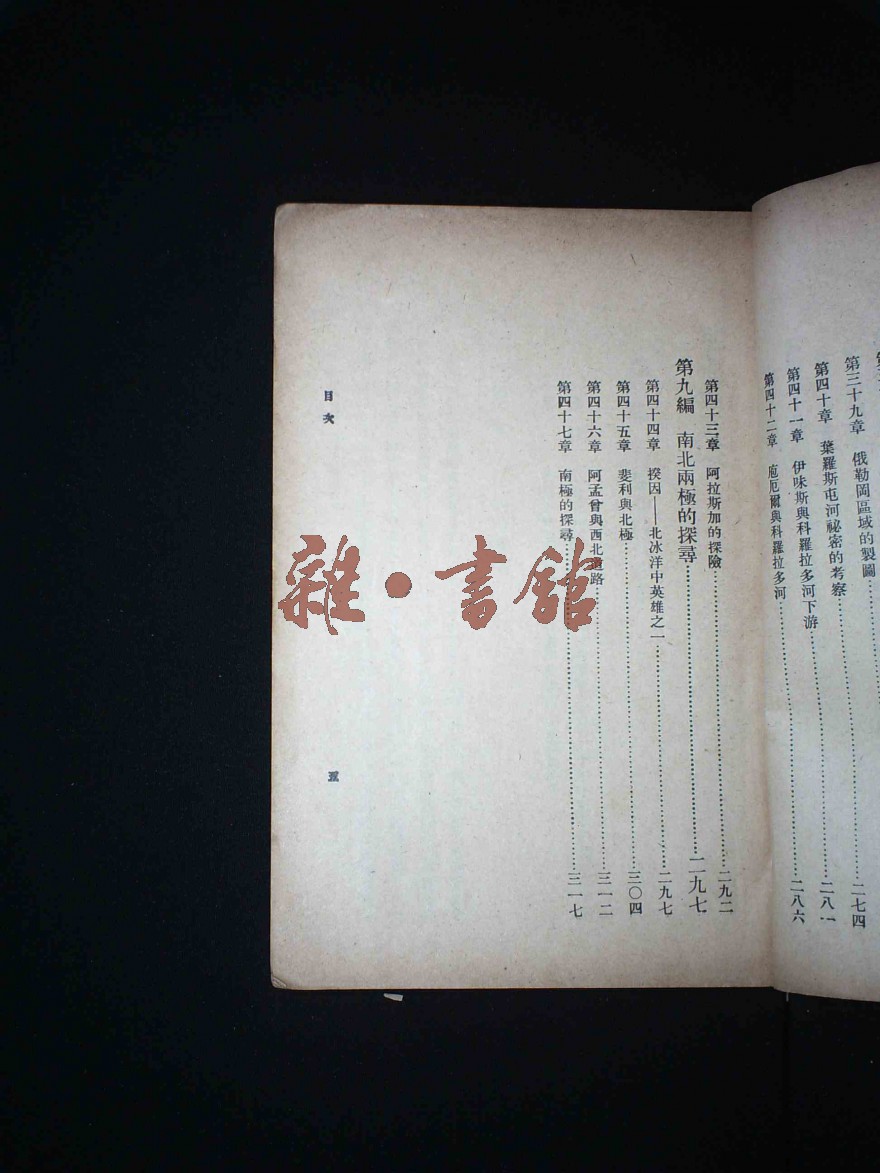 第三十九章　俄勒岡區域的製圖……二七四
第四十章　葉羅斯屯河祕密的考察……二八一
第四十一章　伊味斯與科羅拉多河下游……
第四十二章　庖厄爾與科羅拉多河……二八六
第四十三章　阿拉斯加的探險……二九二
第九編　南北兩極的探尋……二九七
第四十四章　揆因——北冰洋中英雄之一……二九七
第四十五章　斐利與北極……三〇四
第四十六章　阿孟曾與西北道路……三一二
第四十七章　南極的探尋……三一七
目次
五
雜·書館